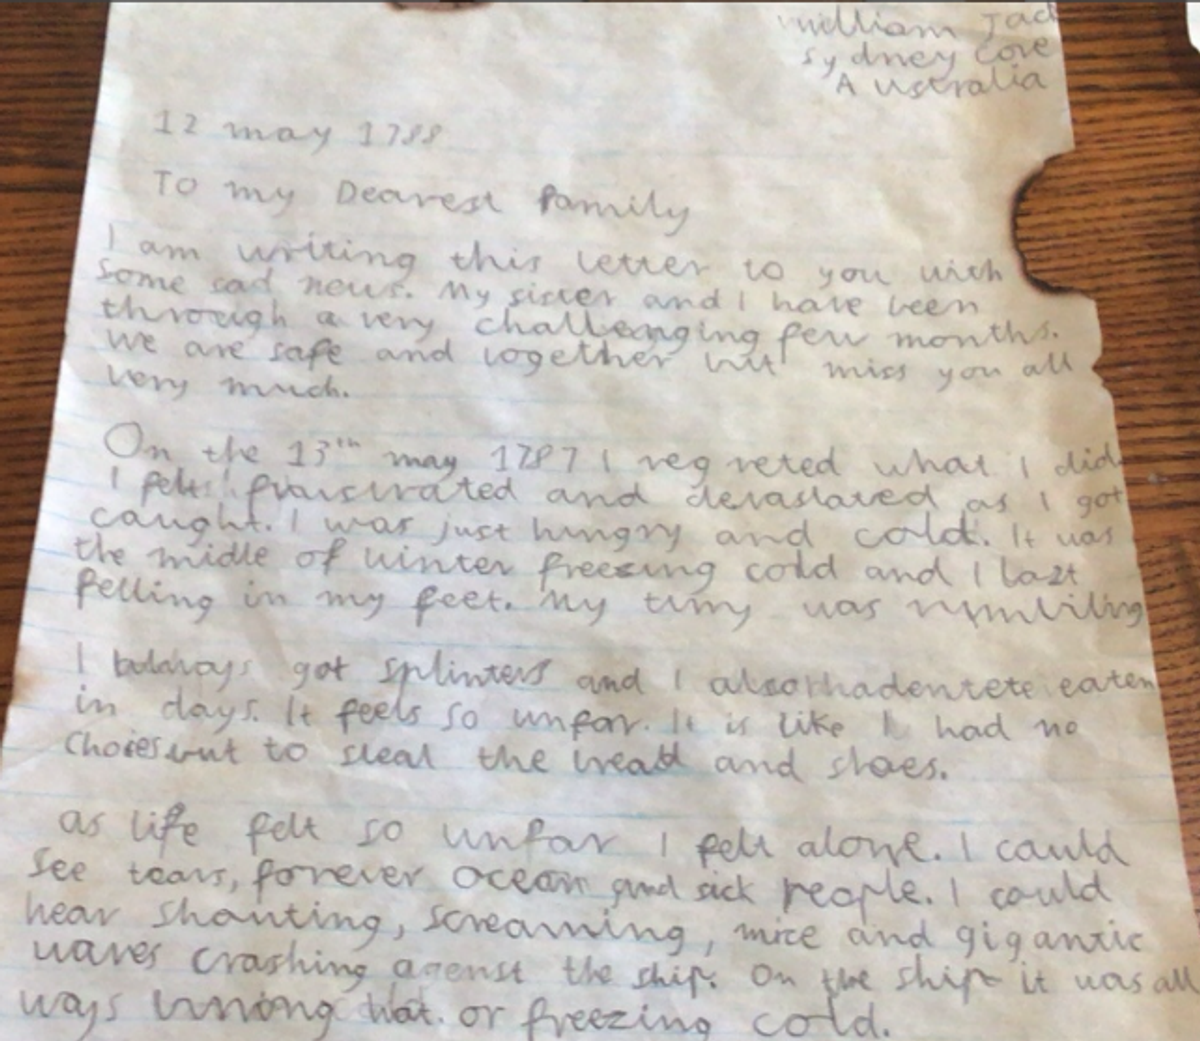 William Jack
Sydney Cove
Australia
12 may 1788
To my Dearest Family
I am writing this letter to you with
some sad news. My sister and I have been
through a very challenging few months.
we are safe and together but miss you all
very much.
On the 13th may 1787 I reg reted what I did
I felt and devastated as I got
caught. I was just hungry and cold. It was
the middle of winter freezing cold and I lost
felling in my feet. My tumy was
I got splinters and I also eaten
in days. It feels so unfar. It is like I had no
but to steal the bread and shoes.
as life felt so unfar I felt alone. I could
see tears, forever ocean and sick people. I could
hear shouting, screaming, mice and gigantic
waves crashing agenst the ship. On the ship it was all
ways hot. or freezing cold.